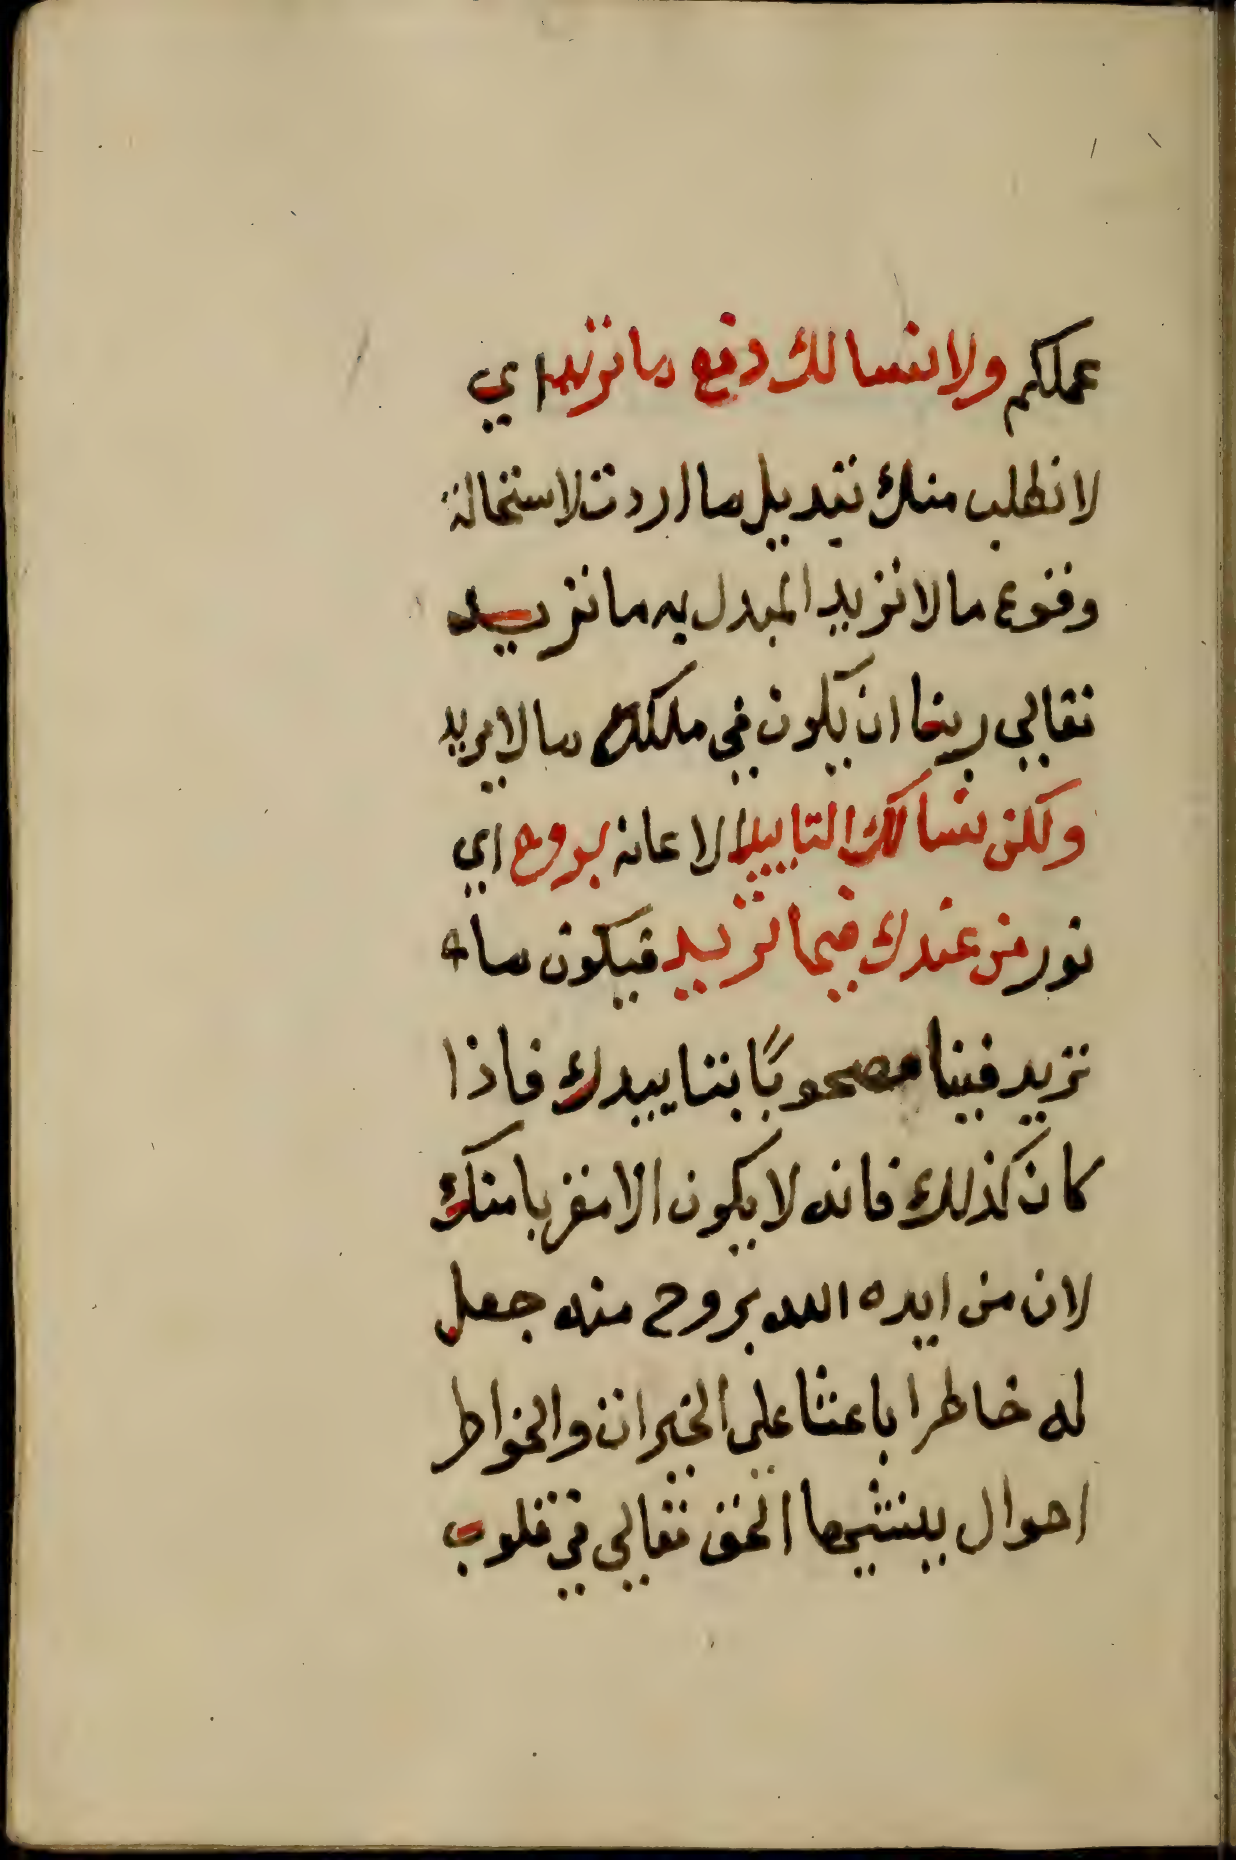 عملكم ولا نسالك دفع ما تريد اي
لا نطلب منك تبديل ما اردت لاستحالة
وقوع ما لا تريد المبدل به ما تريد
تعالي ربنا ان يكون في ملكك ما لا يريد
ولكن نسالك التاييد الاعانة بروح اي
نور من عندك فيما تريد فيكون ما
تريد فينا مصحوبًا بتاييدك فاذا
كان كذلك فانه لا يكون الا مقربا منك
لان من ايده الله بروح منه جعل
له خاطرا باعثا علي الخيرات والخواطر
احوال ينشيها الحق تعالي في قلوب